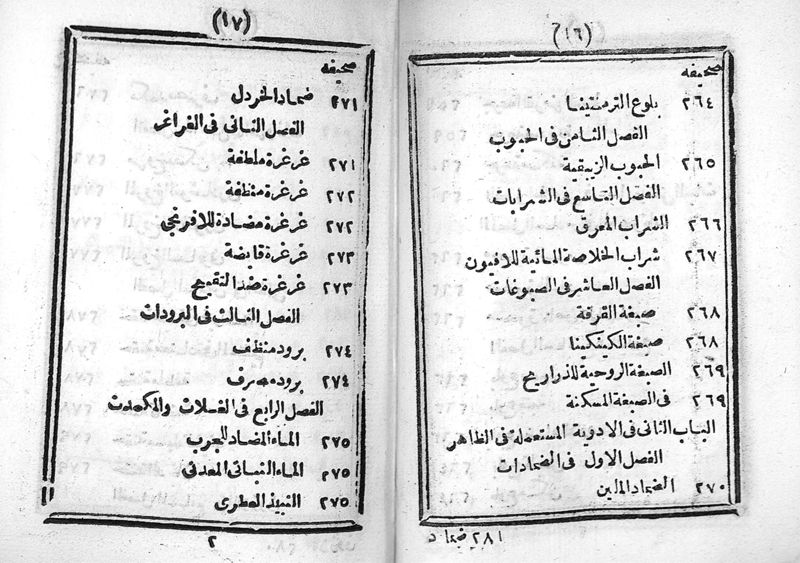 (١٦)
صحيفه
٢٦٤ بلوع الترمنتينا
الفصل الثامن فى الحبوب
٢٦٥ الحبوب الزيبقية
الفصل التاسع فى الشرابات
٢٦٦ الشراب المعرق
٢٦٧ شراب الخلاصة المائية للافيون
الفصل العاشر فى الصبوغات
٢٦٨ صبغة القرفة
٢٦٨ صبغة الكينكينا
٢٦٩ الصبغة الروحية للذراريح
٢٦٩ فى الصبغة المسكنة
الباب الثانى فى الادوية المستعملة فى الظاهر
الفصل الاول فى الضمادات
٢٧٠ الضماد الملين
٢٨١ ضماد
(١٧)
صحيفه
٢٧١ ضماد الخردل
الفصل الثانى فى الغراغر
٢٧١ غرغرة ملطفة
٢٧٢ غرغرة منظفة
٢٧٢ غرغرة مضادة للافرنجى
٢٧٣ غرغرة قابضة
٢٧٣ غرغرة ضد التقيح
الفصل الثالث فى البرودات
٢٧٤ برود منظف
٢٧٤ برود مصرف
الفصل الرابع فى الغسلات والمكمدات
٢٧٥ الماء المضاد للجرب
٢٧٥ الماء النباتى المعدنى
٢٧٥ النبيذ العطرى
٢